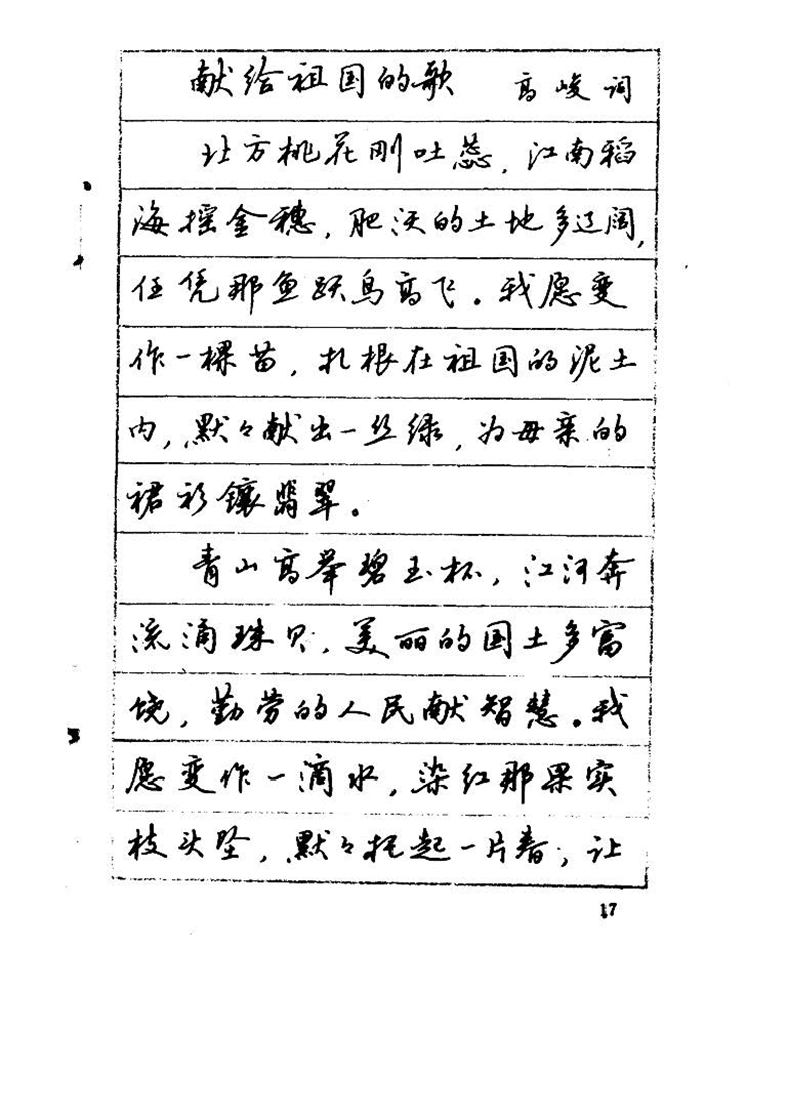 献给祖国的歌 高峻词
北方桃花刚吐蕊,江南稻
海摇金穗,肥沃的土地多辽阔,
任凭那鱼跃鸟高飞。我愿变
作一棵苗,扎根在祖国的泥土
内,默々献出一丝绿,为母亲的
裙衫镶翡翠。
青山高举碧玉杯,江河奔
流涌珠贝,美丽的国土多富
饶,勤劳的人民献智慧。我
愿变作一滴水,染红那果实
枝头坠,默々托起一片春,让
17